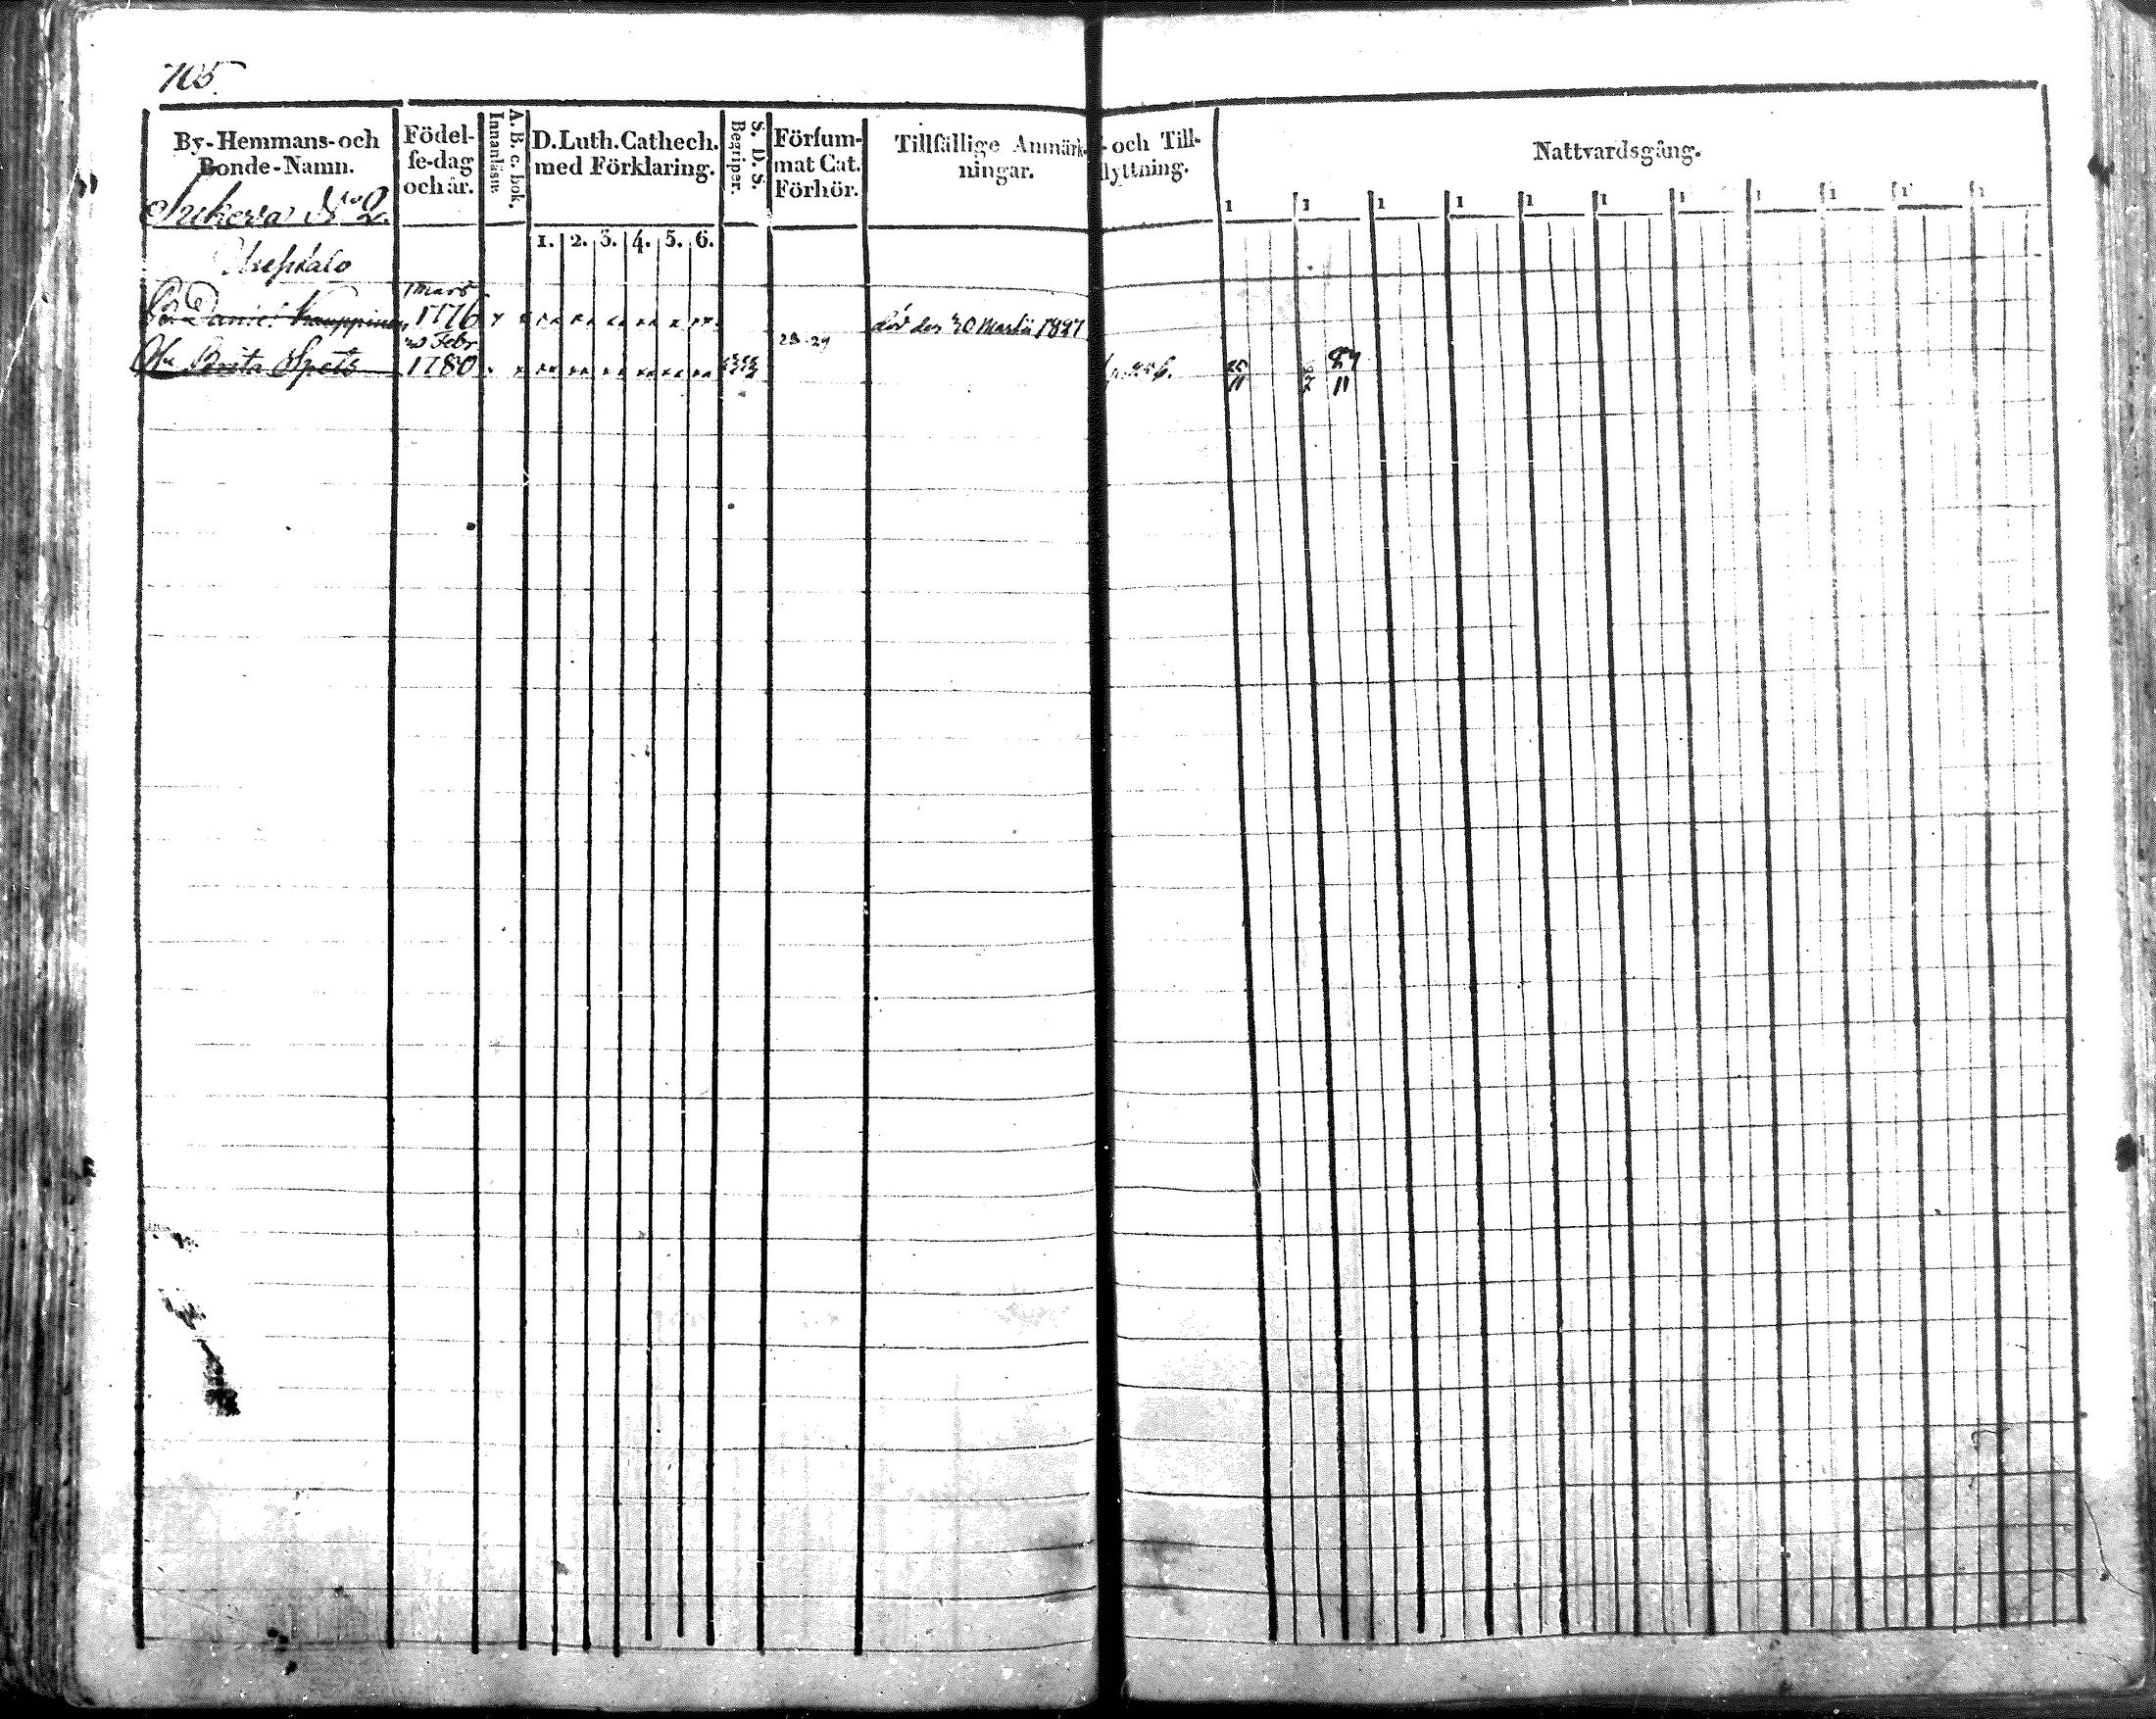 705.
By-Hemmans-och
Bonde-Namn.
Födel-
ſe-dag
och år.
A. B. c. bok.
Innanläsn.
D. Luth. Cathech.
med Förklaring.
S. D. S.
Begriper.
Förſum-
mat Cat.
Förhör.
Tillfällige Anmärk-
ningar.
- och Till-
flyttning.
Nattvardsgång.
Sukeva No 2.
1 1 1 1 1 1 1 1 1 1 1
1. 2. 3. 4. 5. 6.
1 Mars
Daniel Kauppinen 1776 död den 30 Martii 1827
Febr
28-29
Hu Brita Spets 1780
11 7 11